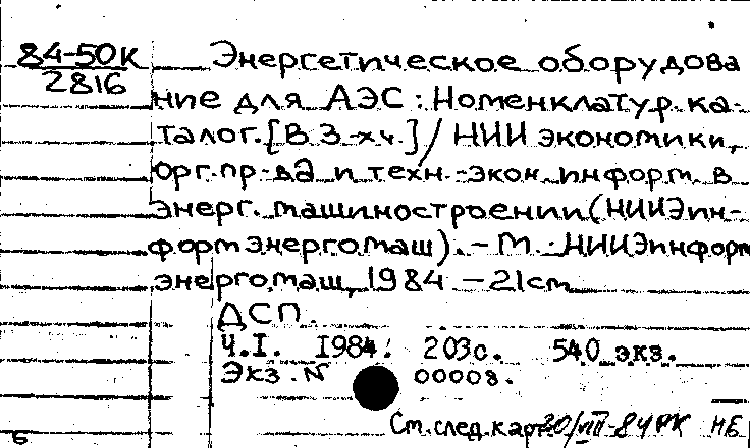 84-50К
2816
Энергетическое оборудова
ние для АЭС: Номенклатур. ка-
талог. [В 3-х ч.] / НИИ экономики,
орг. пр-ва и техн.-экон. информ. в
энерг. машиностроении (НИИЭин-
формэнергомаш). - М.: НИИЭинформ
энергомаш, 1984 - 21см
ДСП.
Ч.I. 1984. 203с. 540 экз.
Экз. N 00008.
См. след. карт. 20/VIII-84 РК НБ
6